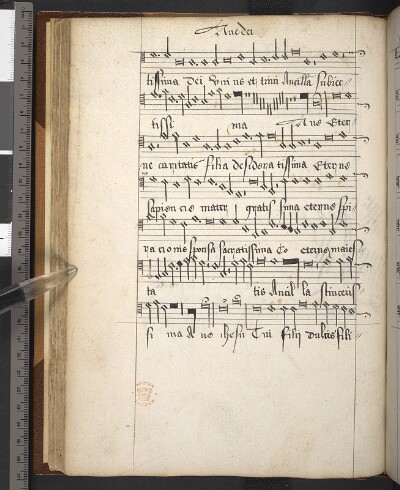 Ave dei
tissima Dei Uni us et trini Ancilla subiec
tissi ma Ave Eter
ne caritatis filia desidera tissima Eter ne
sapien cie mater gratis sima eterne spi
ra cionis sponsa sacratissima Co eterne maies
ta tis Ancil la sinceris
si ma A ve ihesu Tui filii dulcis fili